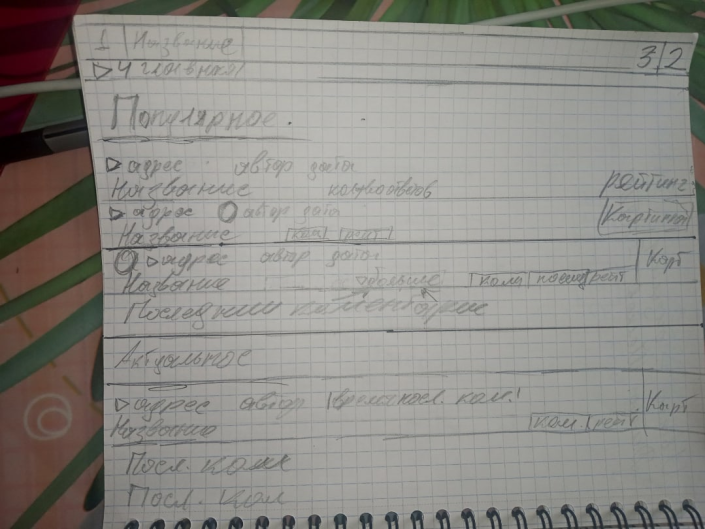 1 Название
4 главная 3 2
Популярное.
адрес автор дата
Название рейтинг
адрес автор дата Картинка
Название ком рейт
адрес автор дата Карт
Название ком рейт
Последний
Актуальное
адрес автор время посл. ком. Карт
Название ком. рейт
Посл. комм
Посл. ком